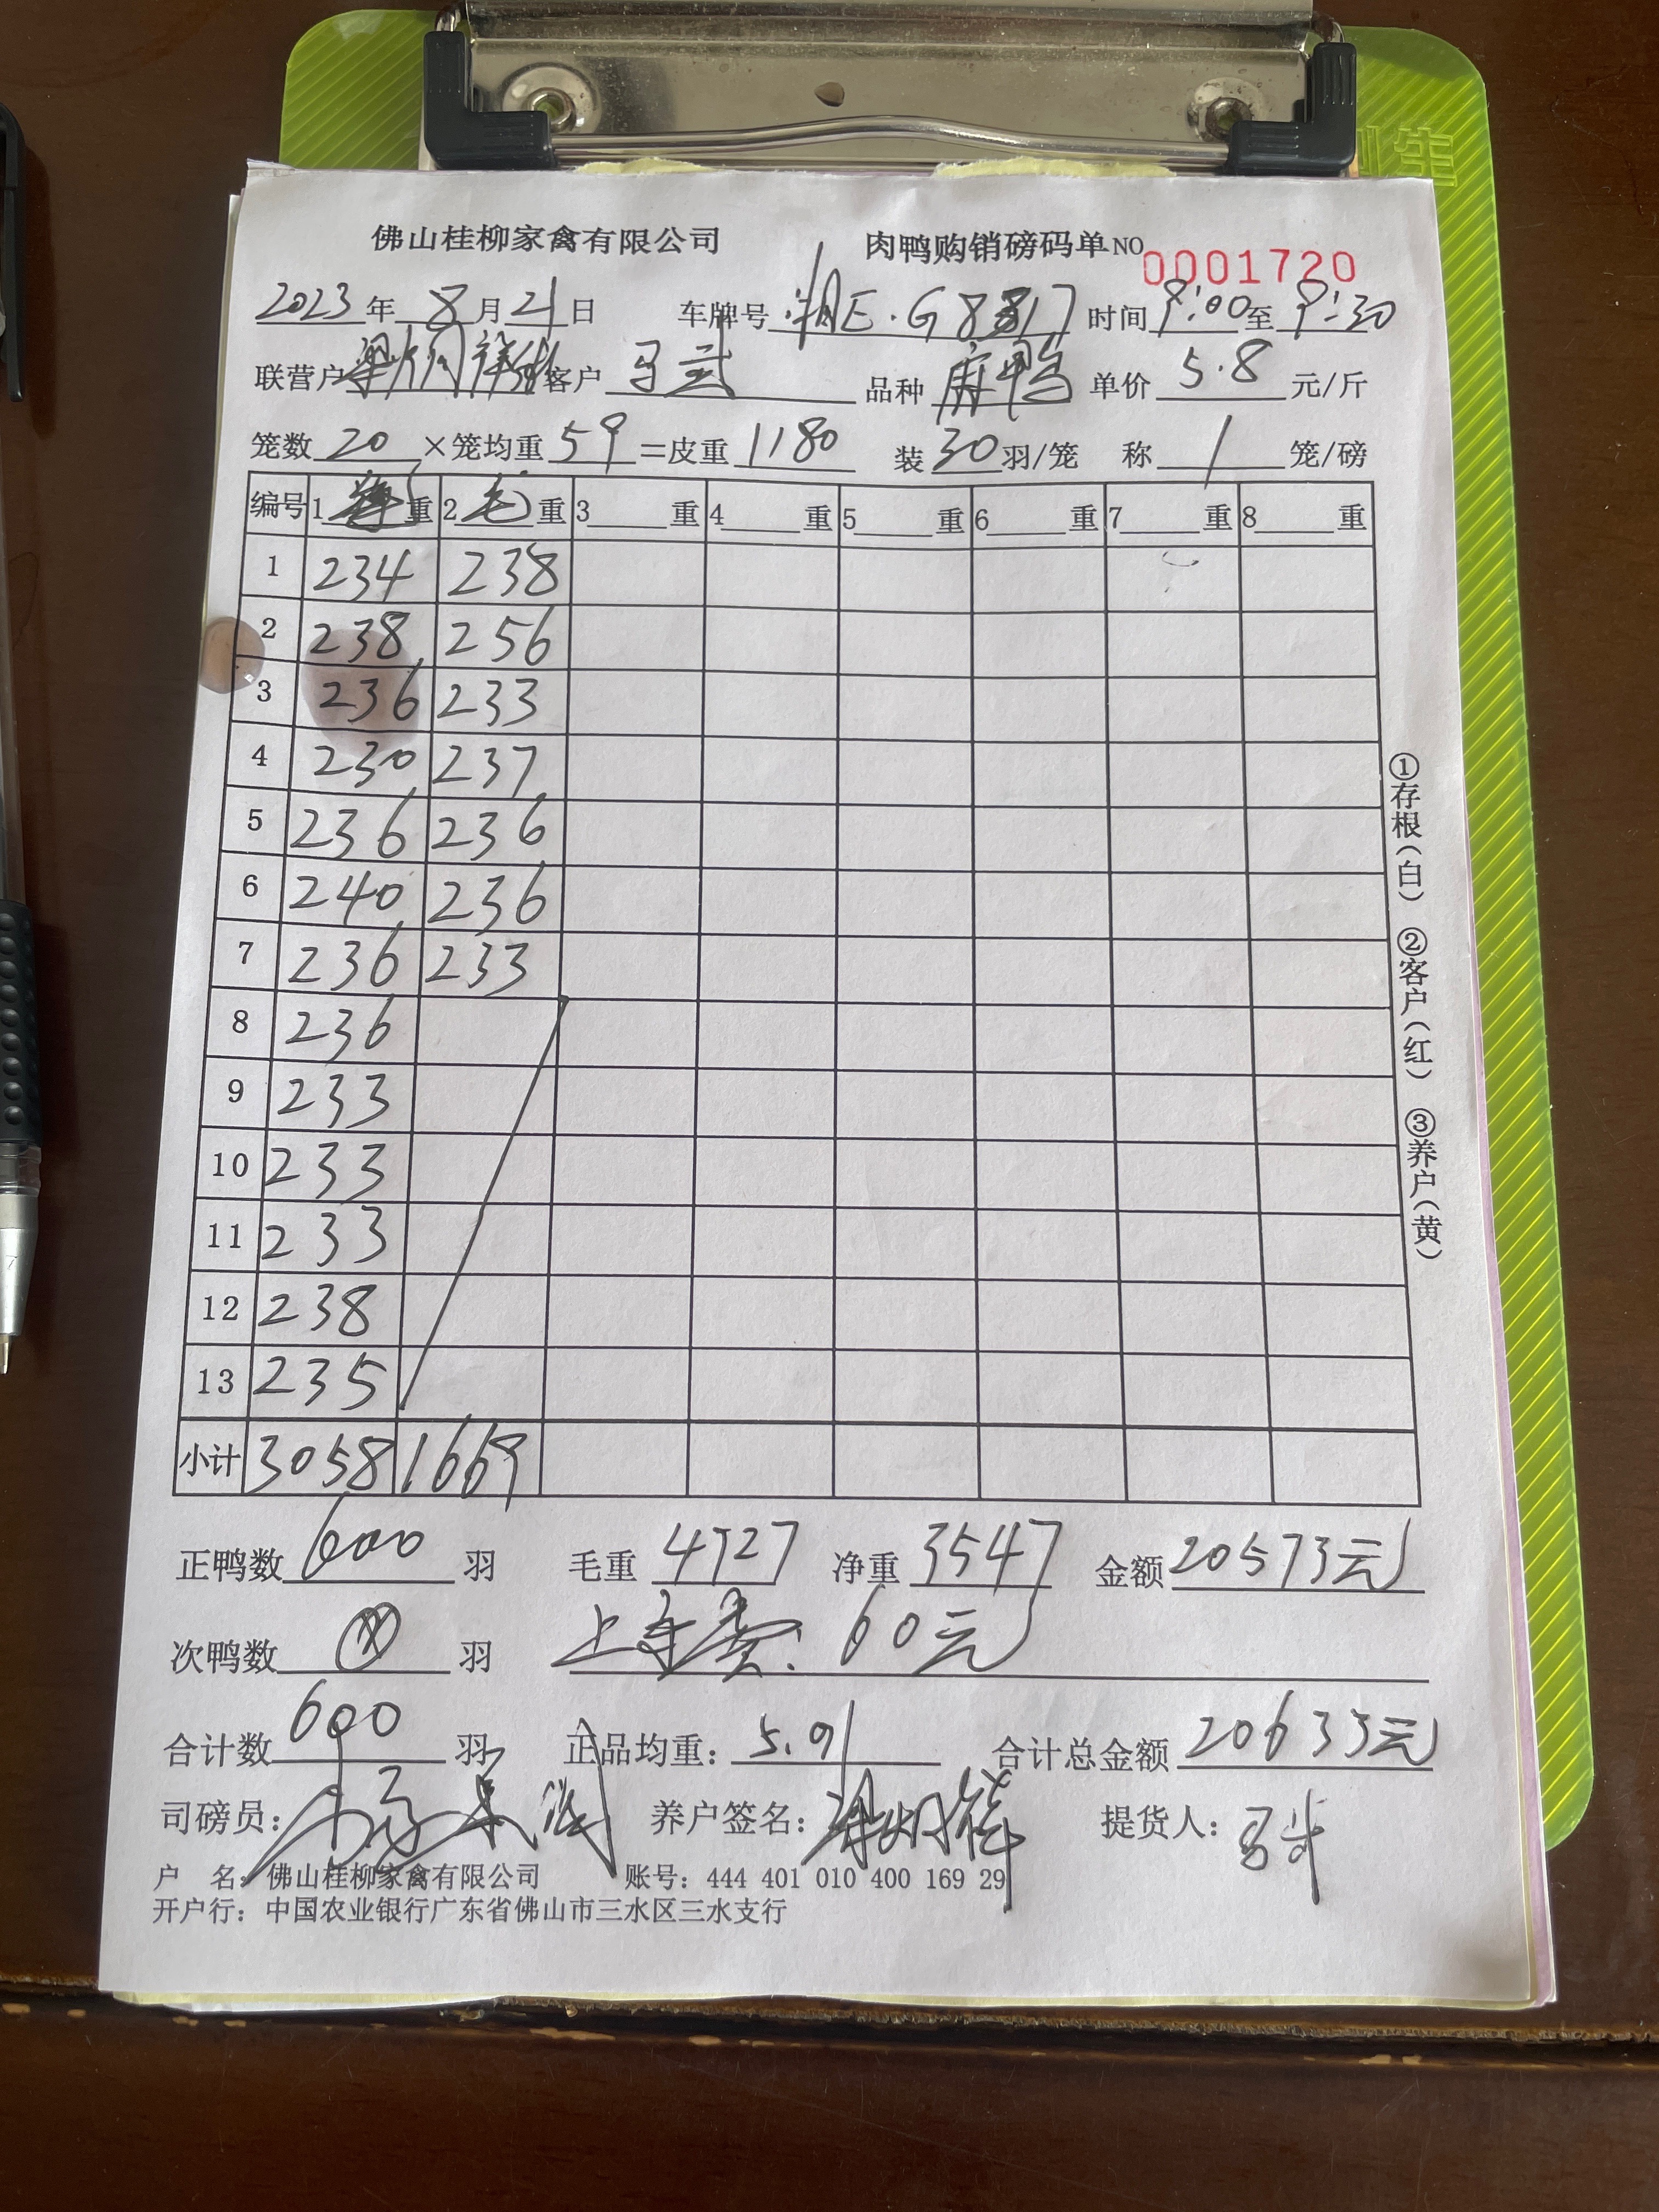 佛山桂柳家禽有限公司 肉鸭购销磅码单NO 0001720
2023年8月21日 车牌号湘E·G8817 时间9:00至9:30
联营户 客户 马武 品种 麻鸭 单价 5.8 元/斤
笼数 20 ×笼均重 59 =皮重 1180 装 30 羽/笼 称 1 笼/磅
编号 1 重 2 毛 重 3 重 4 重 5 重 6 重 7 重 8 重
1 234 238
2 238 256
3 236 233
4 230 237
5 236 236
6 240 236
7 236 233
8 236
9 233
10 233
11 233
12 238
13 235
小计 3058 1669
正鸭数 600 羽 毛重 4727 净重 3547 金额 20573元
次鸭数 羽 上车费: 60元
合计数 600 羽 正品均重: 5.91 合计总金额 20633元
司磅员: 养户签名: 提货人:
户 名: 佛山桂柳家禽有限公司 账号: 444 401 010 400 169 29
开户行: 中国农业银行广东省佛山市三水区三水支行
①存根(白) ②客户(红) ③养户(黄)